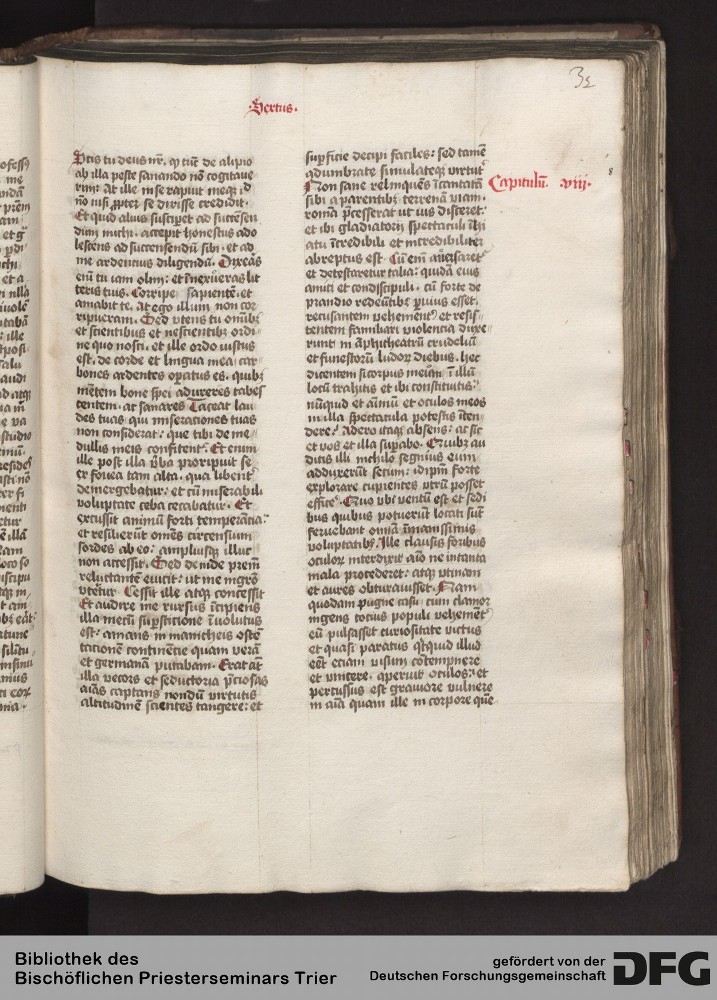 32
·Sextus·
Scis tu deus nr̄, q̄ tūc de alipio
ab illa peste sanando nō cogitaue
rim· At ille in se rapuit meqꝫ id
nō nisi ꝓpter se dixisse credidit·
Et quod alius susciꝑet ad succensen
dum michi· accepit honestus ado
lescens ad succensendū sibi· et ad
me ardencius diligendū· Dixeras
enī tu iam olim· et inexueras lit
teris tuis· Corripe sapientē· et
amabit te. At ego illum non cor
ripueram· Sed vtens tu omībꝫ
et scientibus et nescientibꝫ ordi
ne quo nosti· et ille ordo iustus
est· de corde et lingua mea· car
bones ardentes oꝑatus es· quibꝫ
mētem bone spei adureres tabes
centem· ac sanares Taceat lau
des tuas qui miseraciones tuas
non considerat· que tibi de me
dullis meis confitent᷑· Et enim
ille post illa v̄ba proripuit se
ex fouea tam alta· qua libent᷑
demergebatur· et cū miserabili
voluptate ceba cecabatur· Et
excussit animū forti temperātia·
et resilierūt omēs circensium
sordes ab eo· ampliusqꝫ illuc
non accessit· Sed deinde prem̄
reluctantē euicit· ut me mgrō
vtetur· Cessit ille atqꝫ concessit
Et audire me rursus īcipiens
illa mecū suꝑsticione īuolutus
est· amans in manicheis ostē
tacionē continēcie quam verā
et germanā putabam· Erat aūt
illa vecors et seductoria p̄ciosas
aīas captans nondū virtutis
altitudinē scientes tangere· et
suꝑficie decipi faciles· sed tamē
adumbrate simulateqꝫ virtut᷑
Non sane relinquēs īcantatā
sibi a parentibꝫ terrenā viam·
romā p̄cesserat ut ius disceret·
et ibi gladiatorij spectaculi īhi
atu īcredibili et incredibiliter
abreptus est· Cū em̄ au̓saret᷑
et detestaretur talia· quidā eius
amici et condiscipuli· cū forte de
prandio redeūtibꝫ ꝑuius esset·
recusantem vehement᷑ et resis
tentem familiari violencia duxe
runt in āphitheatrū crudeliū
et funestorū ludoꝝ diebus· hec
dicentem si corpus meum ī illū
locū trahitis et ibi constitutis·
nūquid et aīmū et oculos meos
in illa spectacula potestis īten
dere· Adero itaqꝫ absens· ac sic
et vos et illa suꝑabo· Quibꝫ au
ditis illi nichilo segnius eum
adduxerūt secum· idip̄m forte
explorare cupientes vtrū posset
efficē· Quo vbi ventū est et sedi
bus quibus potuerūt locati sūt
feruebant omīa īmanissimis
voluptatibꝫ· Ille clausis foribus
oculoꝝ interdixit aīo ne in tanta
mala procederet· atqꝫ vtinam
et aures obturauisset· Nam
quodam pugne casu· cum clamor
ingens tocius populi vehement᷑
eū pulsasset curiositate victus
et quasi paratus q̄cquid illud
eēt eciam visum cōtempnere
et vincere· aperuit oculos· et
percussus est grauiore vulnere
in aīa quam ille in corpore quē
Capitulū· viij·
8
Bibliothek des
Bischöflichen Priesterseminars Trier
gefördert von der
Deutschen Forschungsgemeinschaft
DFG